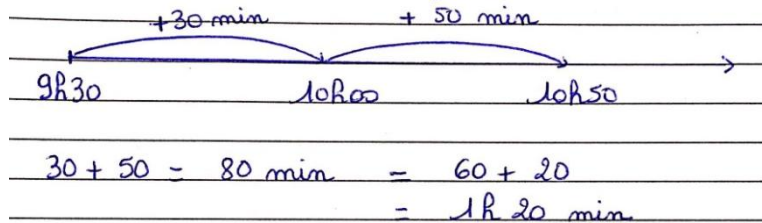 +30 min + 50 min
9h30 10h00 10h50
30 + 50 = 80 min = 60 + 20
= 1h 20 min